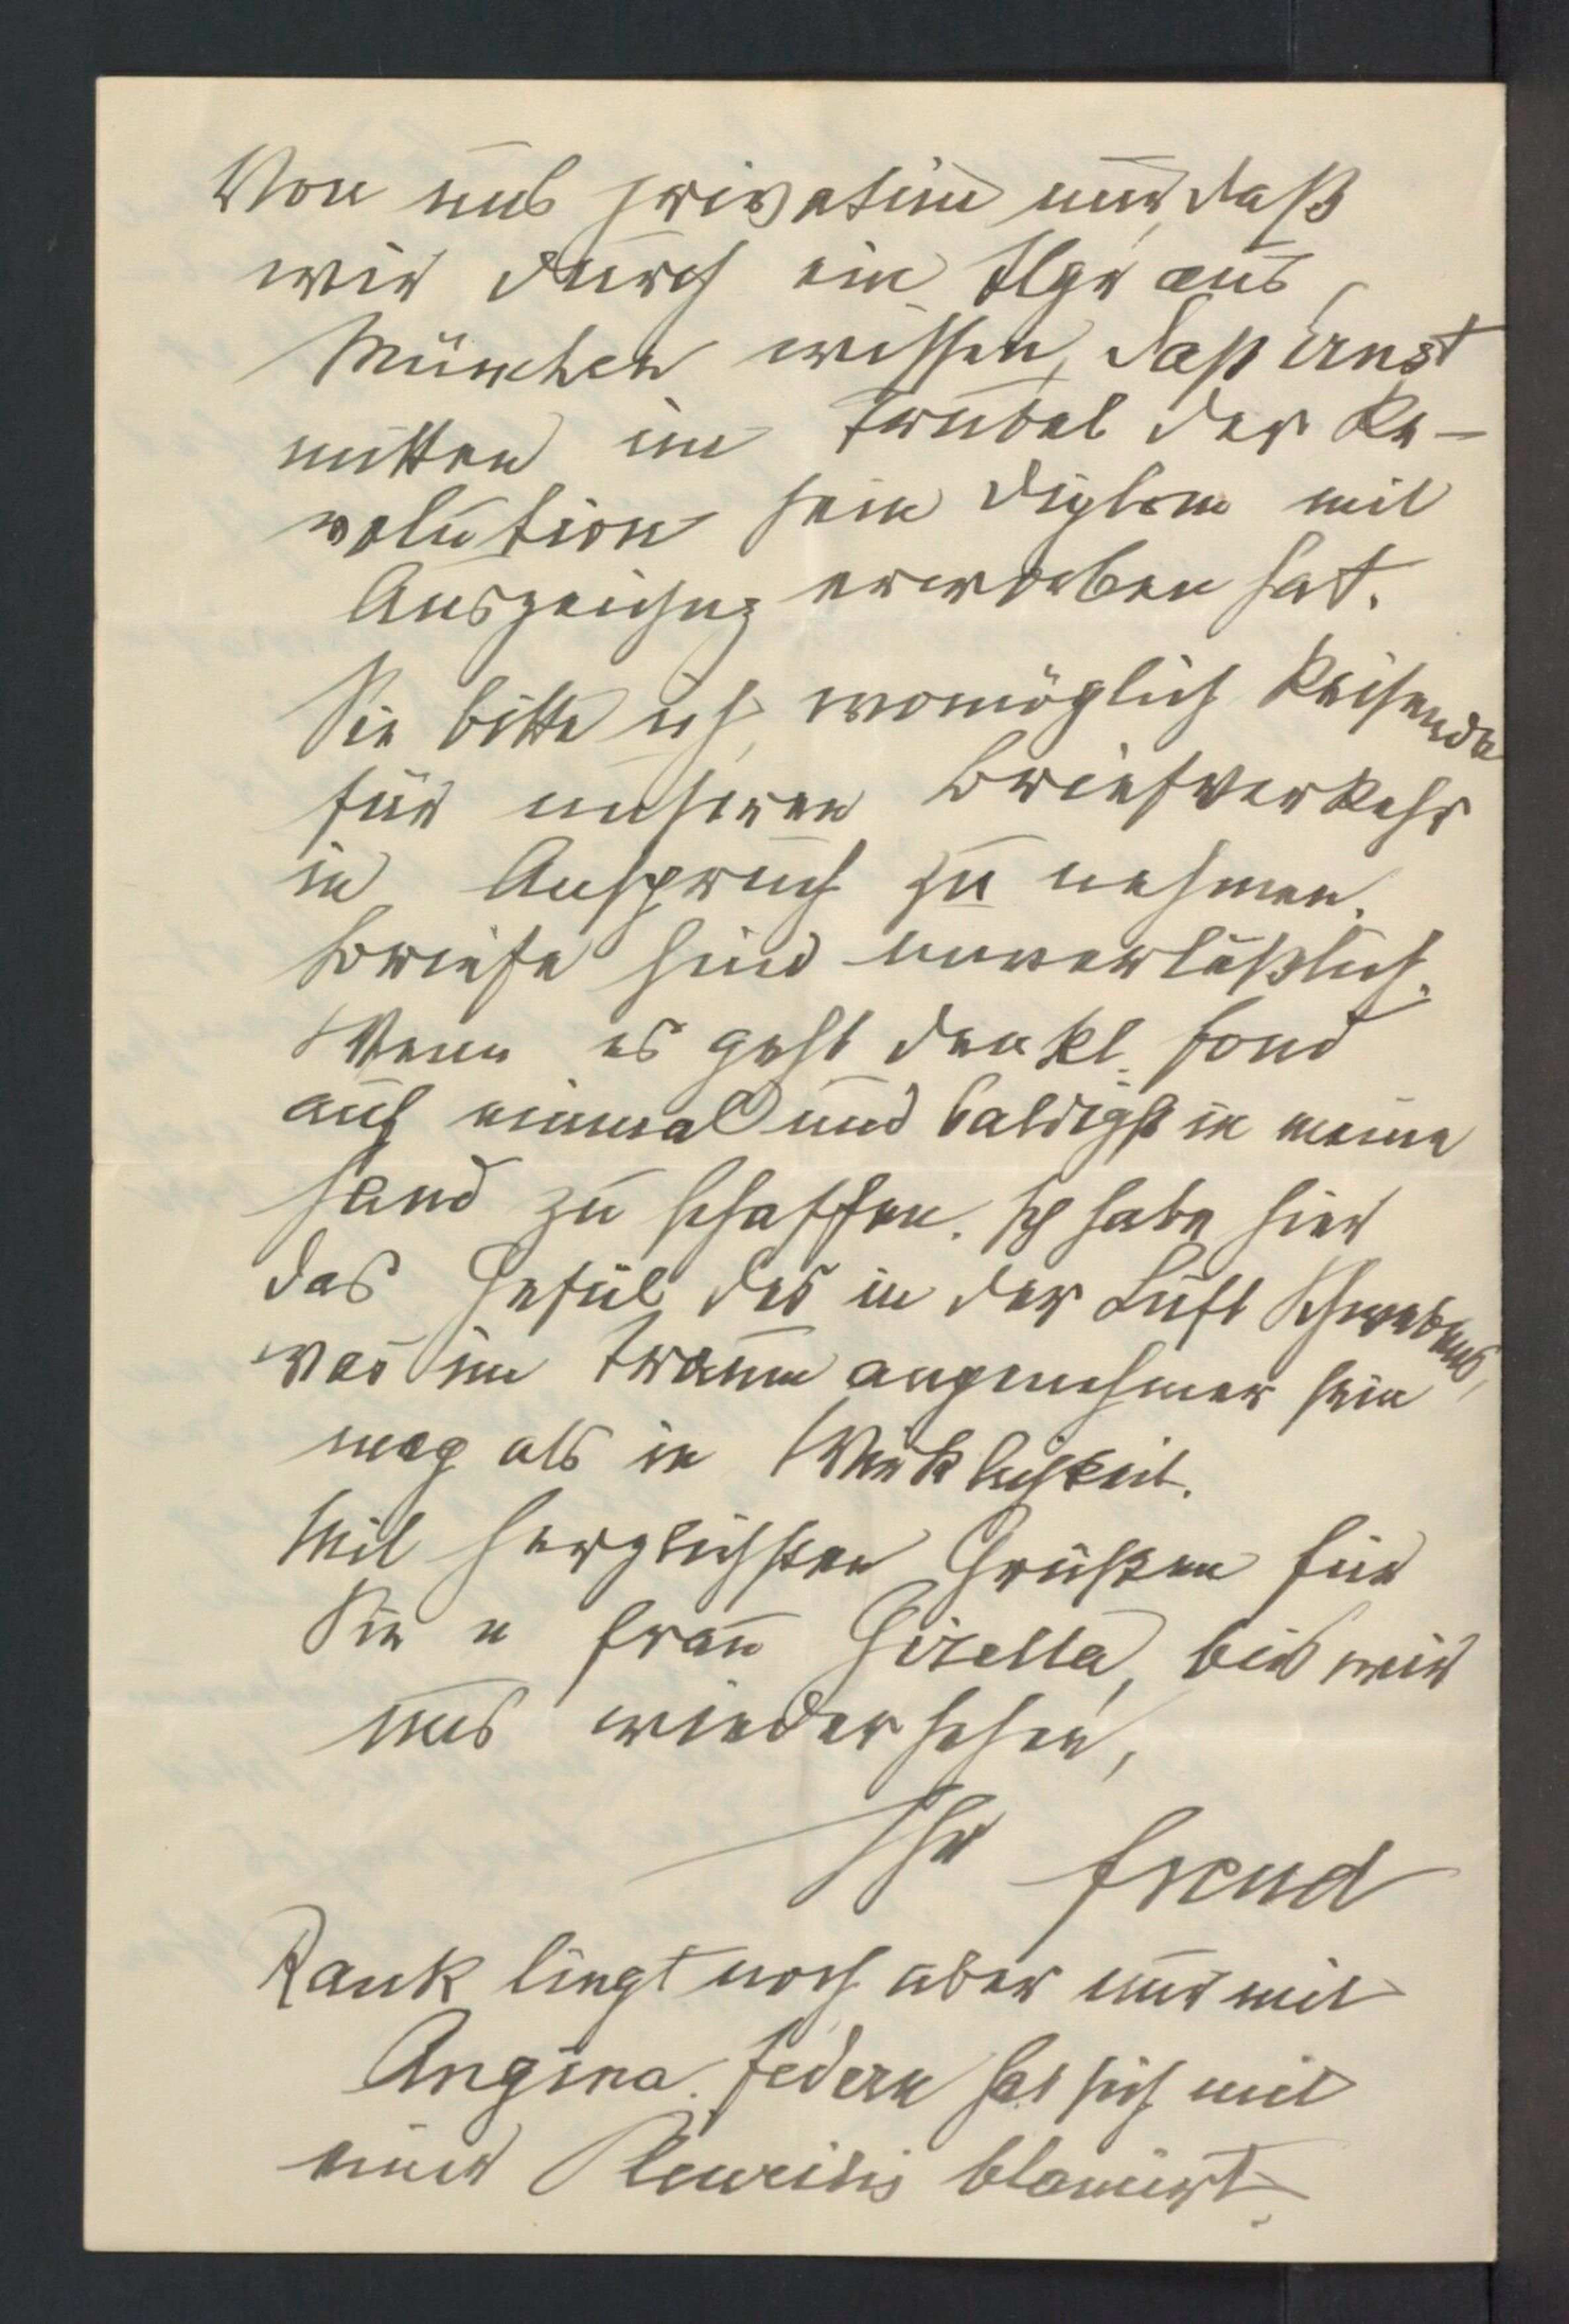 Von uns privatim nur, daß
wir durch ein Tlgr aus
München wissen, daß Ernst
mitten im Trubel der Re-
volution sein Diplom mit
Auszeichng erworben hat.
Sie bitte ich, womöglich Reisende
für unseren Briefverkehr
in Anspruch zu nehmen.
Briefe sind unverläßlich.
Wenn es geht den kl. Fond
auf einmal und baldigst in meine
Hand zu schaffen. Ich habe hier
das Gefül des in der Luft Schwebens,
was im Traum angenehmer sein
mag als in Wirklichkeit.
Mit herzlichsten Grüßen für
Sie u Frau Gisella, bis wir
uns wiedersehen,
Ihr Freud
Rank liegt noch aber nur mit
Angina. Federn hat sich mit
einer Pleuritis blamirt.